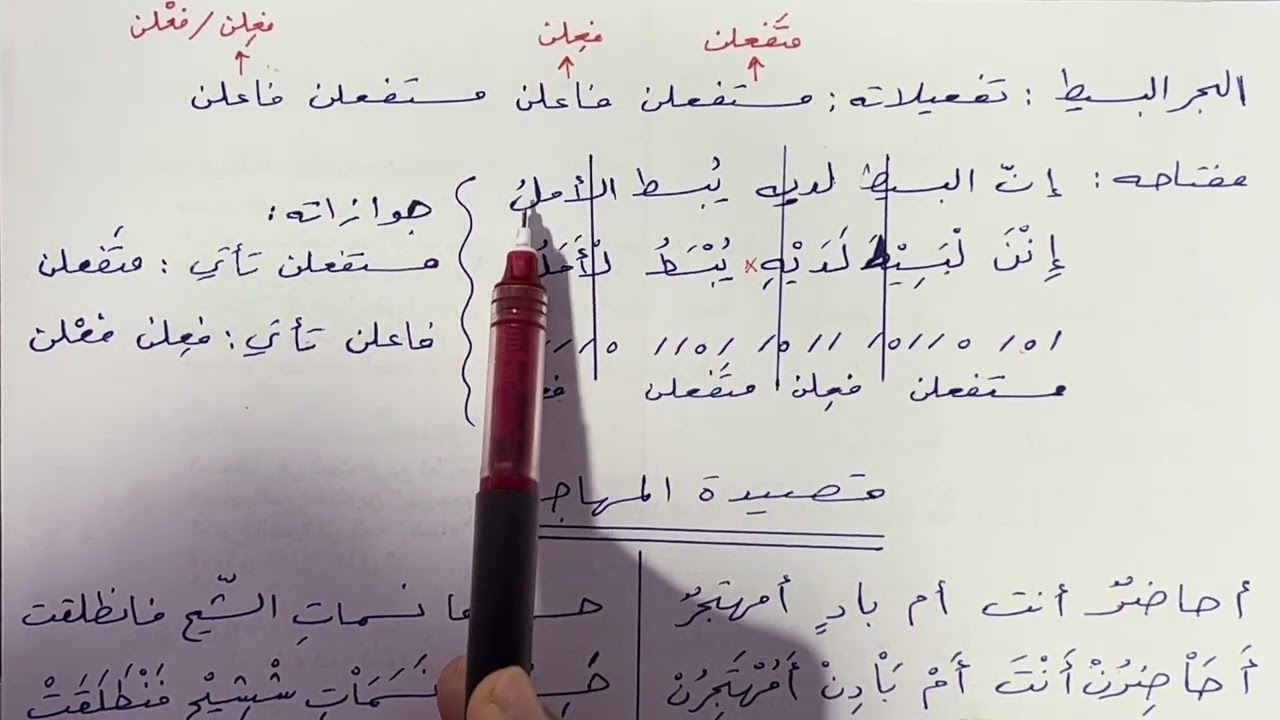 مَتَفعلن فعِلن فعِلن / فعْلن
البحر البسيط : تفعيلاته : مستفعلن فاعلن مستفعلن فاعلن
مفتاحه : إنّ البسيط لديه يُبسط الأملُ
إِنْنَ لْبَسِيْطَ لَدَيْهِ × يُبْسَطُ لْأَمَلُ
/o/o //o/o/ //o/ //o// /o//
مستفعلن فعِلن متَفعلن
جوازاته :
مستفعلن تأتي : متَفعلن
فاعلن تأتي : فعِلن فعْلن
قصيدة المهاجـ
أحاضرٌ أنت أم بادٍ أمهتجرٌ نسماتِ الشّيح فانطلقت
أَحَاْضِرُنْ أَنْتَ أَمْ بَاْدِنْ أَمُهْتَجِرُنْ نَسَمَاْتِ شْشِيْحِ فَنْطَلَقَتْ